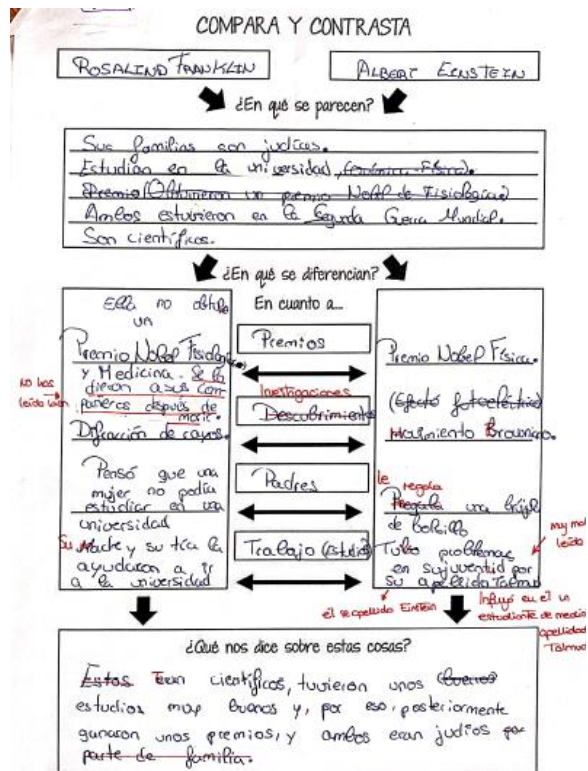 COMPARA Y CONTRASTA
ROSALIND FRANKLIN
ALBERT EINSTEIN
¿En qué se parecen?
Sus familias son judías.
Estudian en la universidad, (
Premio (Obtuvieron un premio Nobel de Fisiología)
Ambos estuvieron en la Segunda Guerra Mundial.
Son científicos.
¿En qué se diferencian?
En cuanto a...
Ella no obtuvo
un
Premio Nobel Fisiología
y Medicina. Se lo
dieron a sus com
pañeros después de
morir.
No has
leído bien
Difracción de rayos.
Pensó que una
mujer no podía
estudiar en una
universidad
Su Madre y su tía la
ayudaron a ir
a la universidad
Premios
Investigaciones
Descubrimientos
Padres
Trabajo (estudios)
Premio Nobel Física.
(Efecto fotoeléctrico)
Movimiento Browniano.
le regala
Regala una brújula
de bolsillo
Tuvo problemas
en su juventud por
su apellido Talmud
muy mal
leído
él se apellida Einstein
Influyó en él un
estudiante de medicina
apellidado
Talmud
¿Qué nos dice sobre estas cosas?
Estos Eran científicos, tuvieron unos (buenos
estudios muy buenos y, por eso, posteriormente
ganaron unos premios, y ambos eran judíos por
parte de familia.